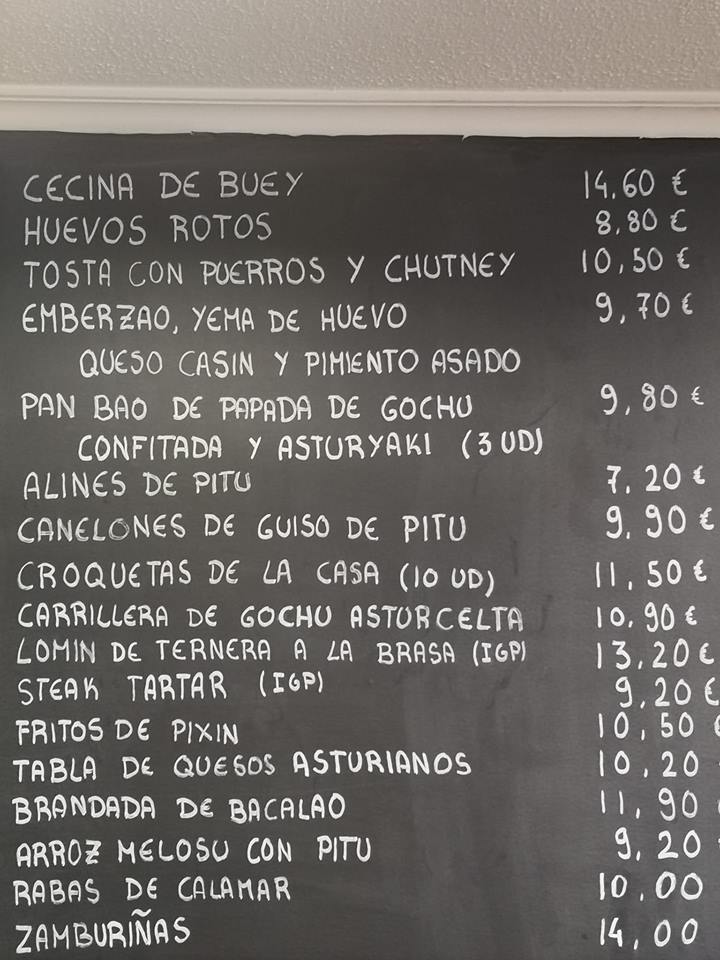 CECINA DE BUEY 14,60 €
HUEVOS ROTOS 8,80 €
TOSTA CON PUERROS Y CHUTNEY 10,50 €
EMBERZAO, YEMA DE HUEVO 9,70 €
QUESO CASIN Y PIMIENTO ASADO
PAN BAO DE PAPADA DE GOCHU 9,80 €
CONFITADA Y ASTURYAKI (3 UD)
ALINES DE PITU 7,20 €
CANELONES DE GUISO DE PITU 9,90 €
CROQUETAS DE LA CASA (10 UD) 11,50 €
CARRILLERA DE GOCHU ASTURCELTA 10,90 €
LOMIN DE TERNERA A LA BRASA (IGP) 13,20 €
STEAK TARTAR (IGP) 9,20 €
FRITOS DE PIXIN 10,50 €
TABLA DE QUESOS ASTURIANOS 10,20
BRANDADA DE BACALAO 11,90
ARROZ MELOSU CON PITU 9,20
RABAS DE CALAMAR 10,00
ZAMBURIÑAS 14,00